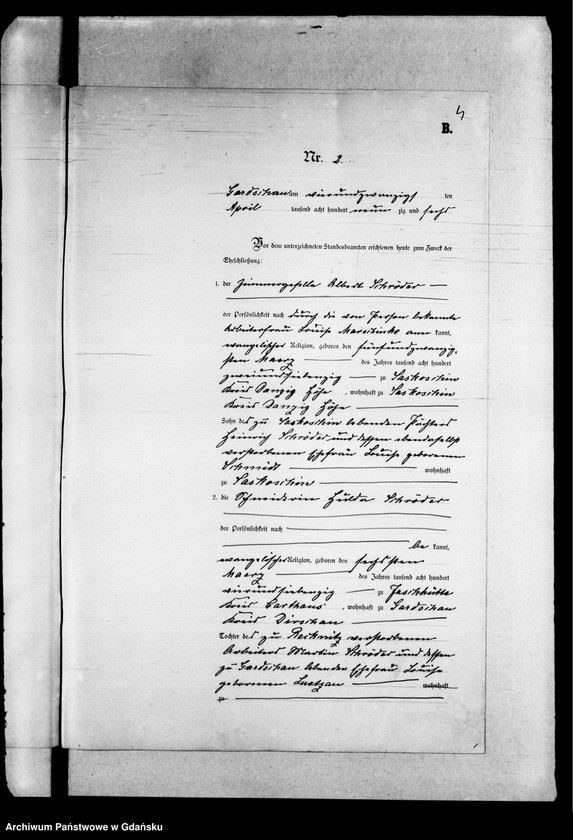 4
B.
Nr. 2.
Gardschau am vierundzwanzigsten
April tausend acht hundert neunzig und sechs
Vor dem unterzeichneten Standesbeamten erschienen heute zum Zweck der
Eheschließung:
1. der Zimmergeselle Albert Schröder
der Persönlichkeit nach durch die von Person bekannte
Arbeiterfrau Louise anerkannt,
evangelischer Religion, geboren den fünfundzwanzig-
sten Maerz des Jahres tausend acht hundert
zweiundsiebenzig zu Saskoschin
Kreis Danziger Höhe, wohnhaft zu Saskoschin
Kreis Danziger Höhe
Sohn des zu Saskoschin lebenden
Heinrich Schröder und dessen ebendaselbst
verstorbenen Ehefrau Louise geborenen
Schmidt wohnhaft
zu Saskoschin
2. die Schneiderin Hulda Schröder
der Persönlichkeit nach
be kannt,
evangelischer Religion, geboren den sechsten
Maerz des Jahres tausend acht hundert
vierundsiebenzig zu Jaschhütte
Kreis Carthaus, wohnhaft zu Gardschau
Kreis Dirschau
Tochter des zu Recknitz verstorbenen
Arbeiters Martin Schröder und dessen
zu Gardschau lebenden Ehefrau Louise
geborenen wohnhaft
zu
Archiwum Państwowe w Gdańsku